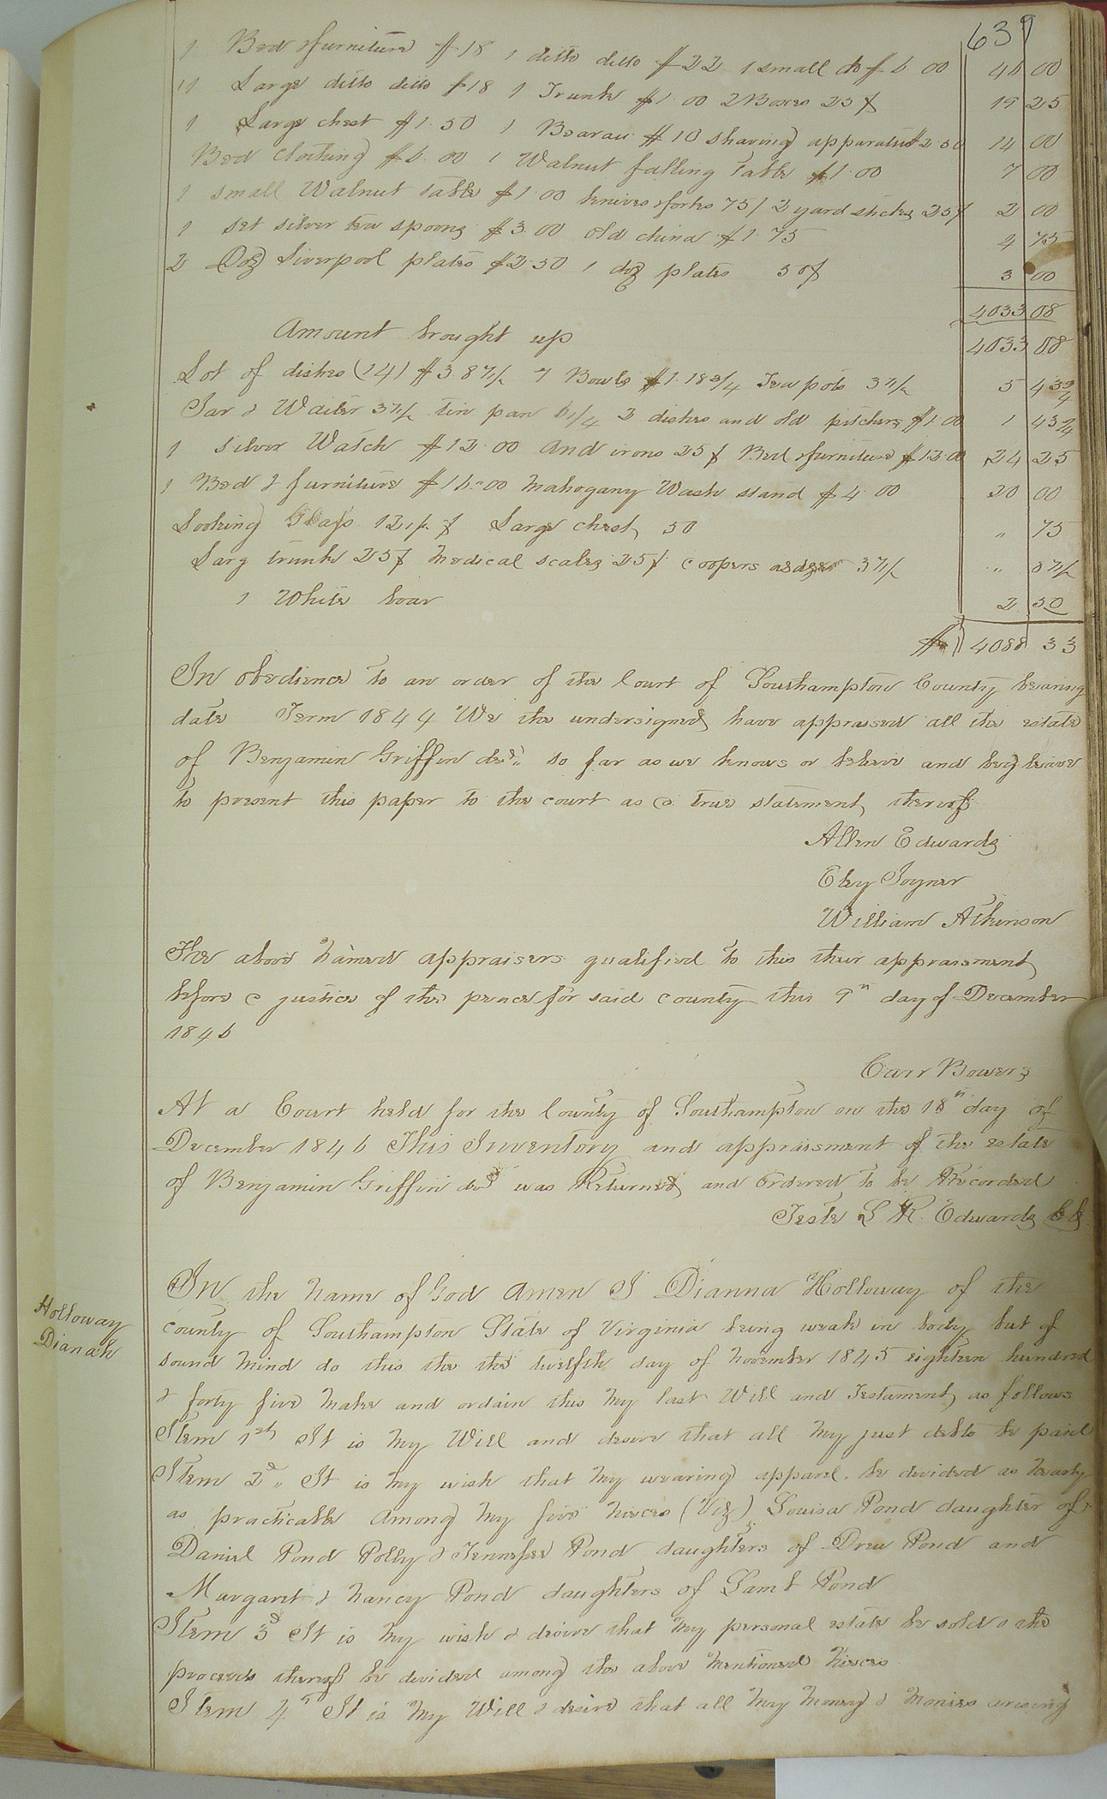 639
1 Bed & furniture $18 1 ditto ditto $22 1 small do $6 00 46 00
11 Large ditto ditto $18 1 Trunk $1.00 2 Boxes 25¢ 19 25
1 Large chest $1.50 1 Beaurau $10 shaving apparatus $2 50 14 00
Bed clothing $6.00 1 Walnut falling table $1.00 7 00
1 small Walnut table $1.00 knives & forks 75/ 2 yard sticks 25¢ 2 00
1 set silver tea spoons $3.00 old china $1.75 4 75
2 Doz Liverpool plates $2.50 1 doz plates 50¢ 3 00
4033 08
Amount brought up 4033 08
Lot of dishes (14) $3.87 1/2 7 Bowls $1.18 3/4 Tea pots 37 1/2 5 43 3/4
Jar & Waiter 37 1/2 tin pan 6 1/4 2 dishes and old pitchers $1.00 1 43 3/4
1 Silver Watch $12.00 And irons 25¢ Bed & furniture $12.00 24 25
1 Bed & furniture $16.00 Mahogany Wash stand $4.00 20 00
Looking Glass Large chest 50 " 75
Larg trunk 25¢ Medical scales 25¢ coopers 37 1/2 " 87 1/2
1 White boar 2 50
$ 4088 33
In obedience to an order of the Court of Southampton County bearing
date Term 1844 We the undersigned have appraised all the estate
of Benjamin Griffin decd. so far as we knows or believe and beg leave
to present this paper to the court as a true statement, thereof
Allen Edwards
Eley Joyner
William Atkinson
The above Named appraisers qualified to this their appraisment
before a justice of the peace for said county this 9th day of December
1846
Carr Bowers
At a Court held for the County of Southampton on the 18th day of
December 1846 This Inventory and appraisment of the estate
of Benjamin Griffin decd was Returned and ordered to be Recorded
Teste L R. Edwards
Holloway
Dianah
In the Name of God Amen I Dianna Holloway of the
county of Southampton State of Virginia being weak in body but of
sound mind do this the the twelfth day of November 1845 eighteen hundred
& forty five make and ordain this my last Will and Testament, as follows
Item 1st It is my Will and desire that all my just debts be paid
Item 2d " It is my wish that my wearing apparel. be divided as nearly
as practicable among my five nieces (Viz) Louisa Pond daughter of
Daniel Pond Polly & Tennessee Pond daughters of Drew Pond and
Margaret & Nancy Pond daughters of Saml Pond
Item 3d It is my wish & desire that my personal estate be sold & the
proceeds thereof be divided among the above mentioned Nieces
Item 4th It is my Will & desire that all my money & monies arising